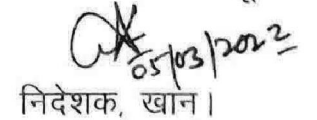 05/03/2022
निदेशक, खान।